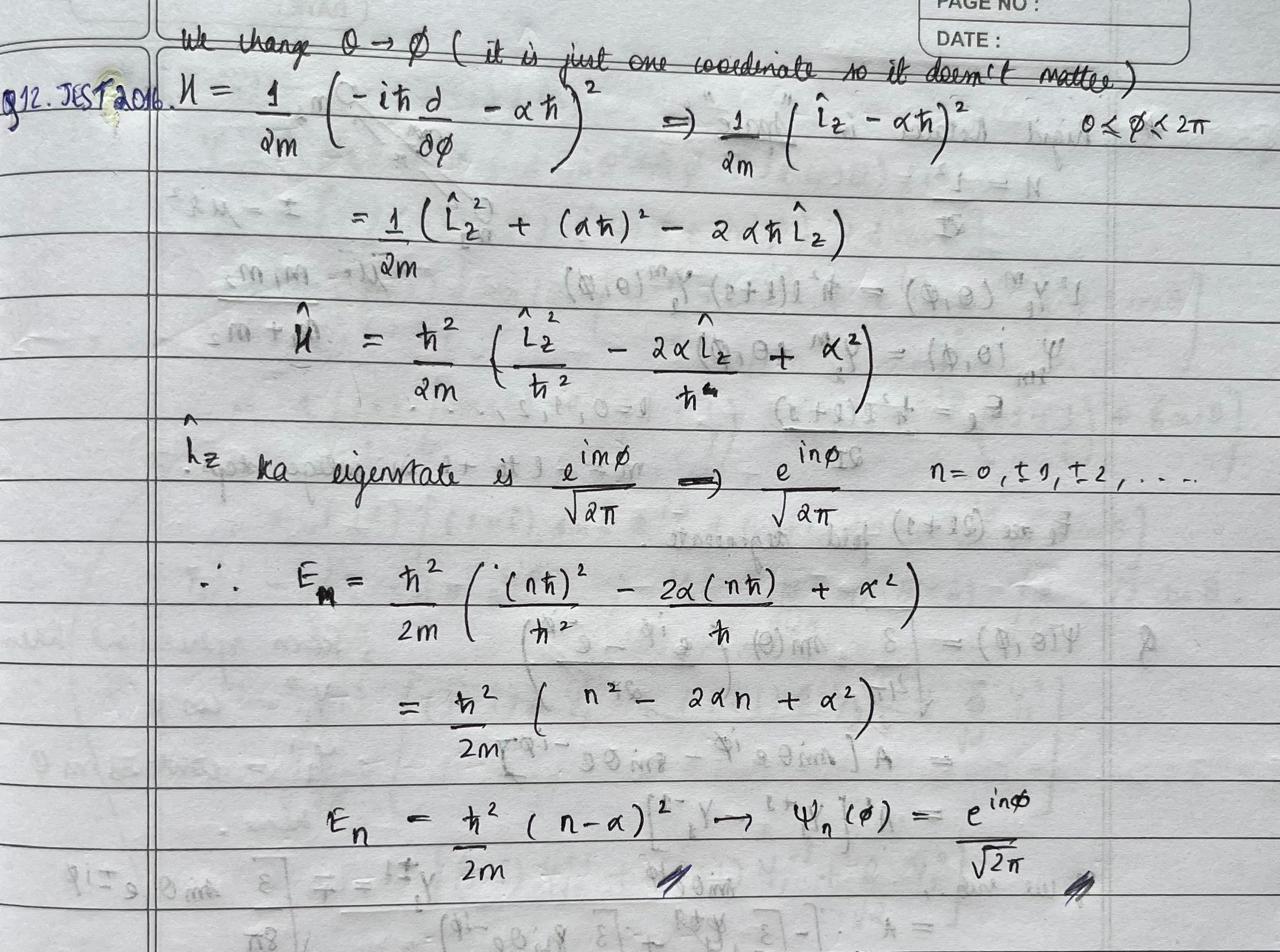 PAGE NO :
DATE :
We change θ → ϕ ( it is just one coordinate so it doesn't matter )
Q12. JEST 2016. H = 1/2m ( -iħ d/∂ϕ - αħ )² ⇒ 1/2m ( L̂z - αħ )² 0 ≤ ϕ ≤ 2π
= 1/2m ( L̂z² + (αħ)² - 2αħ L̂z )
Ĥ = ħ²/2m ( L̂z²/ħ² - 2αL̂z/ħ + α² )
L̂z ka eigenstate is e^{imϕ}/√2π ⇒ e^{inϕ}/√2π n = 0, ±1, ±2, ....
∴ En = ħ²/2m ( (nħ)²/ħ² - 2α(nħ)/ħ + α² )
= ħ²/2m ( n² - 2αn + α² )
En = ħ²/2m ( n-α )² → Ψn(ϕ) = e^{inϕ}/√2π